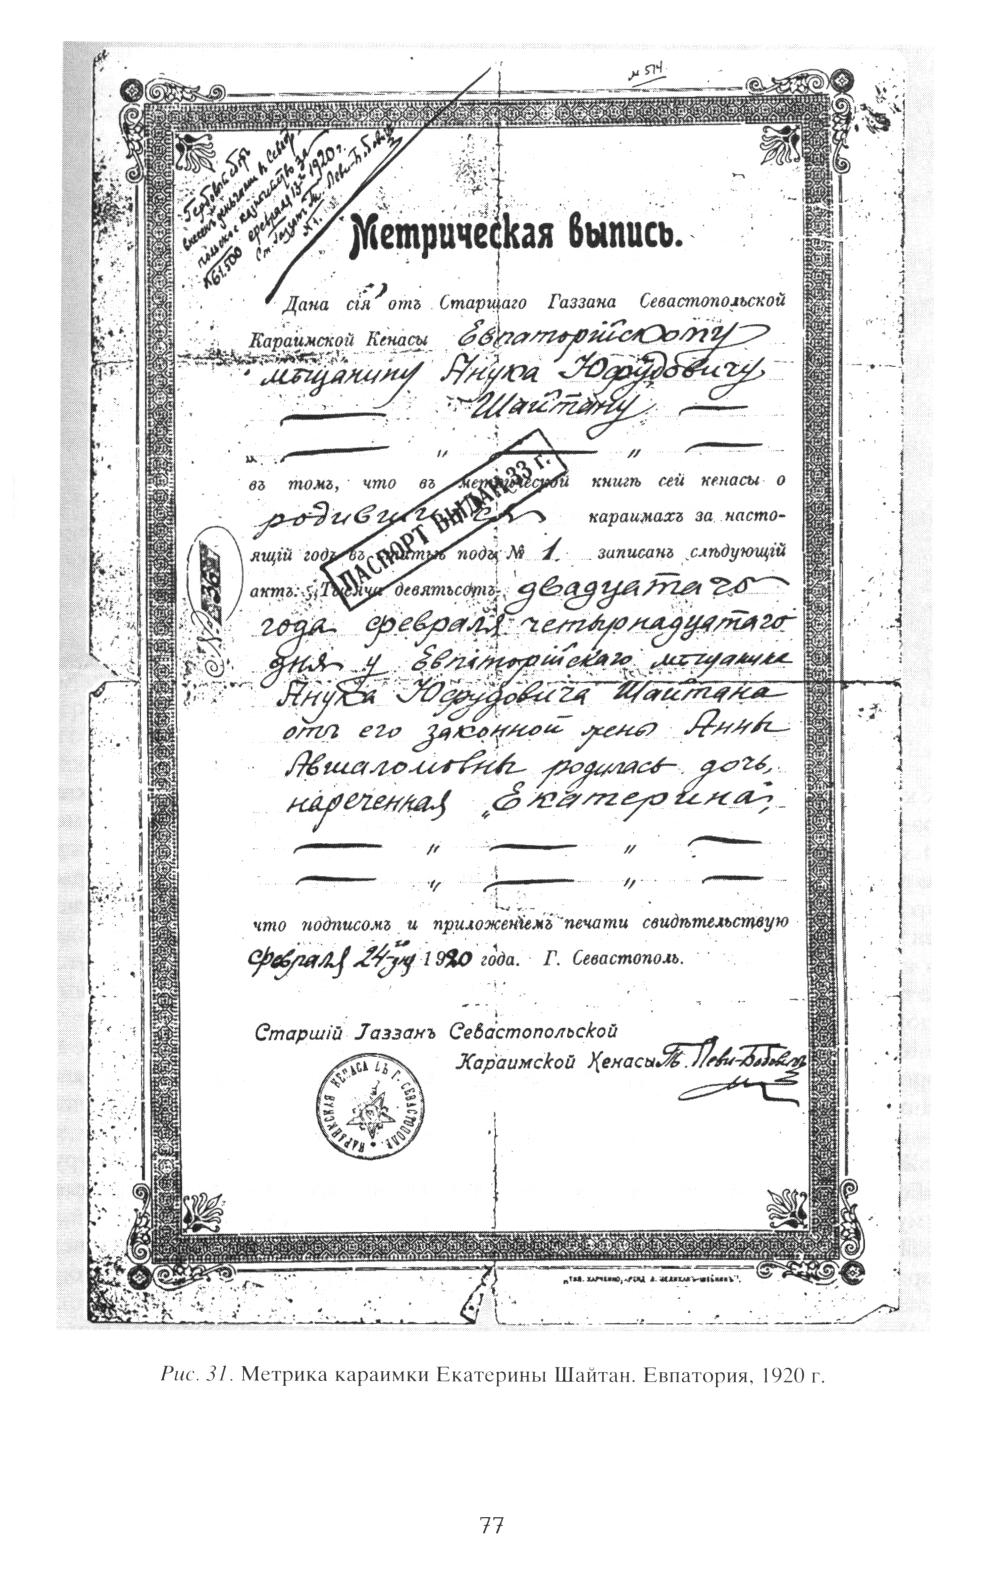 № 514
Гербовый сборъ
внесенъ деньгами въ Севасто-
польское казначейство за
№61.500 февраля 13го 1920 г.
Ст. Газзанъ Т. Леви-Бобовичъ
Метрическая выпись.
Дана сія отъ Старшаго Газзана Севастопольской
Караимской Кенасы Евпаторійскому
мѣщанину Анука Юфудовичу
Шайтану
въ томъ, что въ метрической книгѣ сей кенасы о
родившихся караимахъ за насто-
ящій годъ въ статьѣ подъ № 1. записанъ слѣдующій
актъ: „Тысяча девятьсотъ двадцатаго
года февраля четырнадцатаго
дня у Евпаторійскаго мѣщанина
Анука Юфудовича Шайтана
отъ его законной жены Анны
Авшаломовны родилась дочь,
нареченная „Екатерина“,
ПАСПОРТ ВЫДАН 33 г.
№ 36
что подписомъ и приложеніемъ печати свидѣтельствую
февраля 24го дня 1920 года. Г. Севастополь.
Старшій Газзанъ Севастопольской
Караимской Кенасы Т. Леви-Бобовичъ
КАРАИМСКАЯ КЕНАСА ВЪ Г. СЕВАСТОПОЛ.
Рис. 31. Метрика караимки Екатерины Шайтан. Евпатория, 1920 г.
77